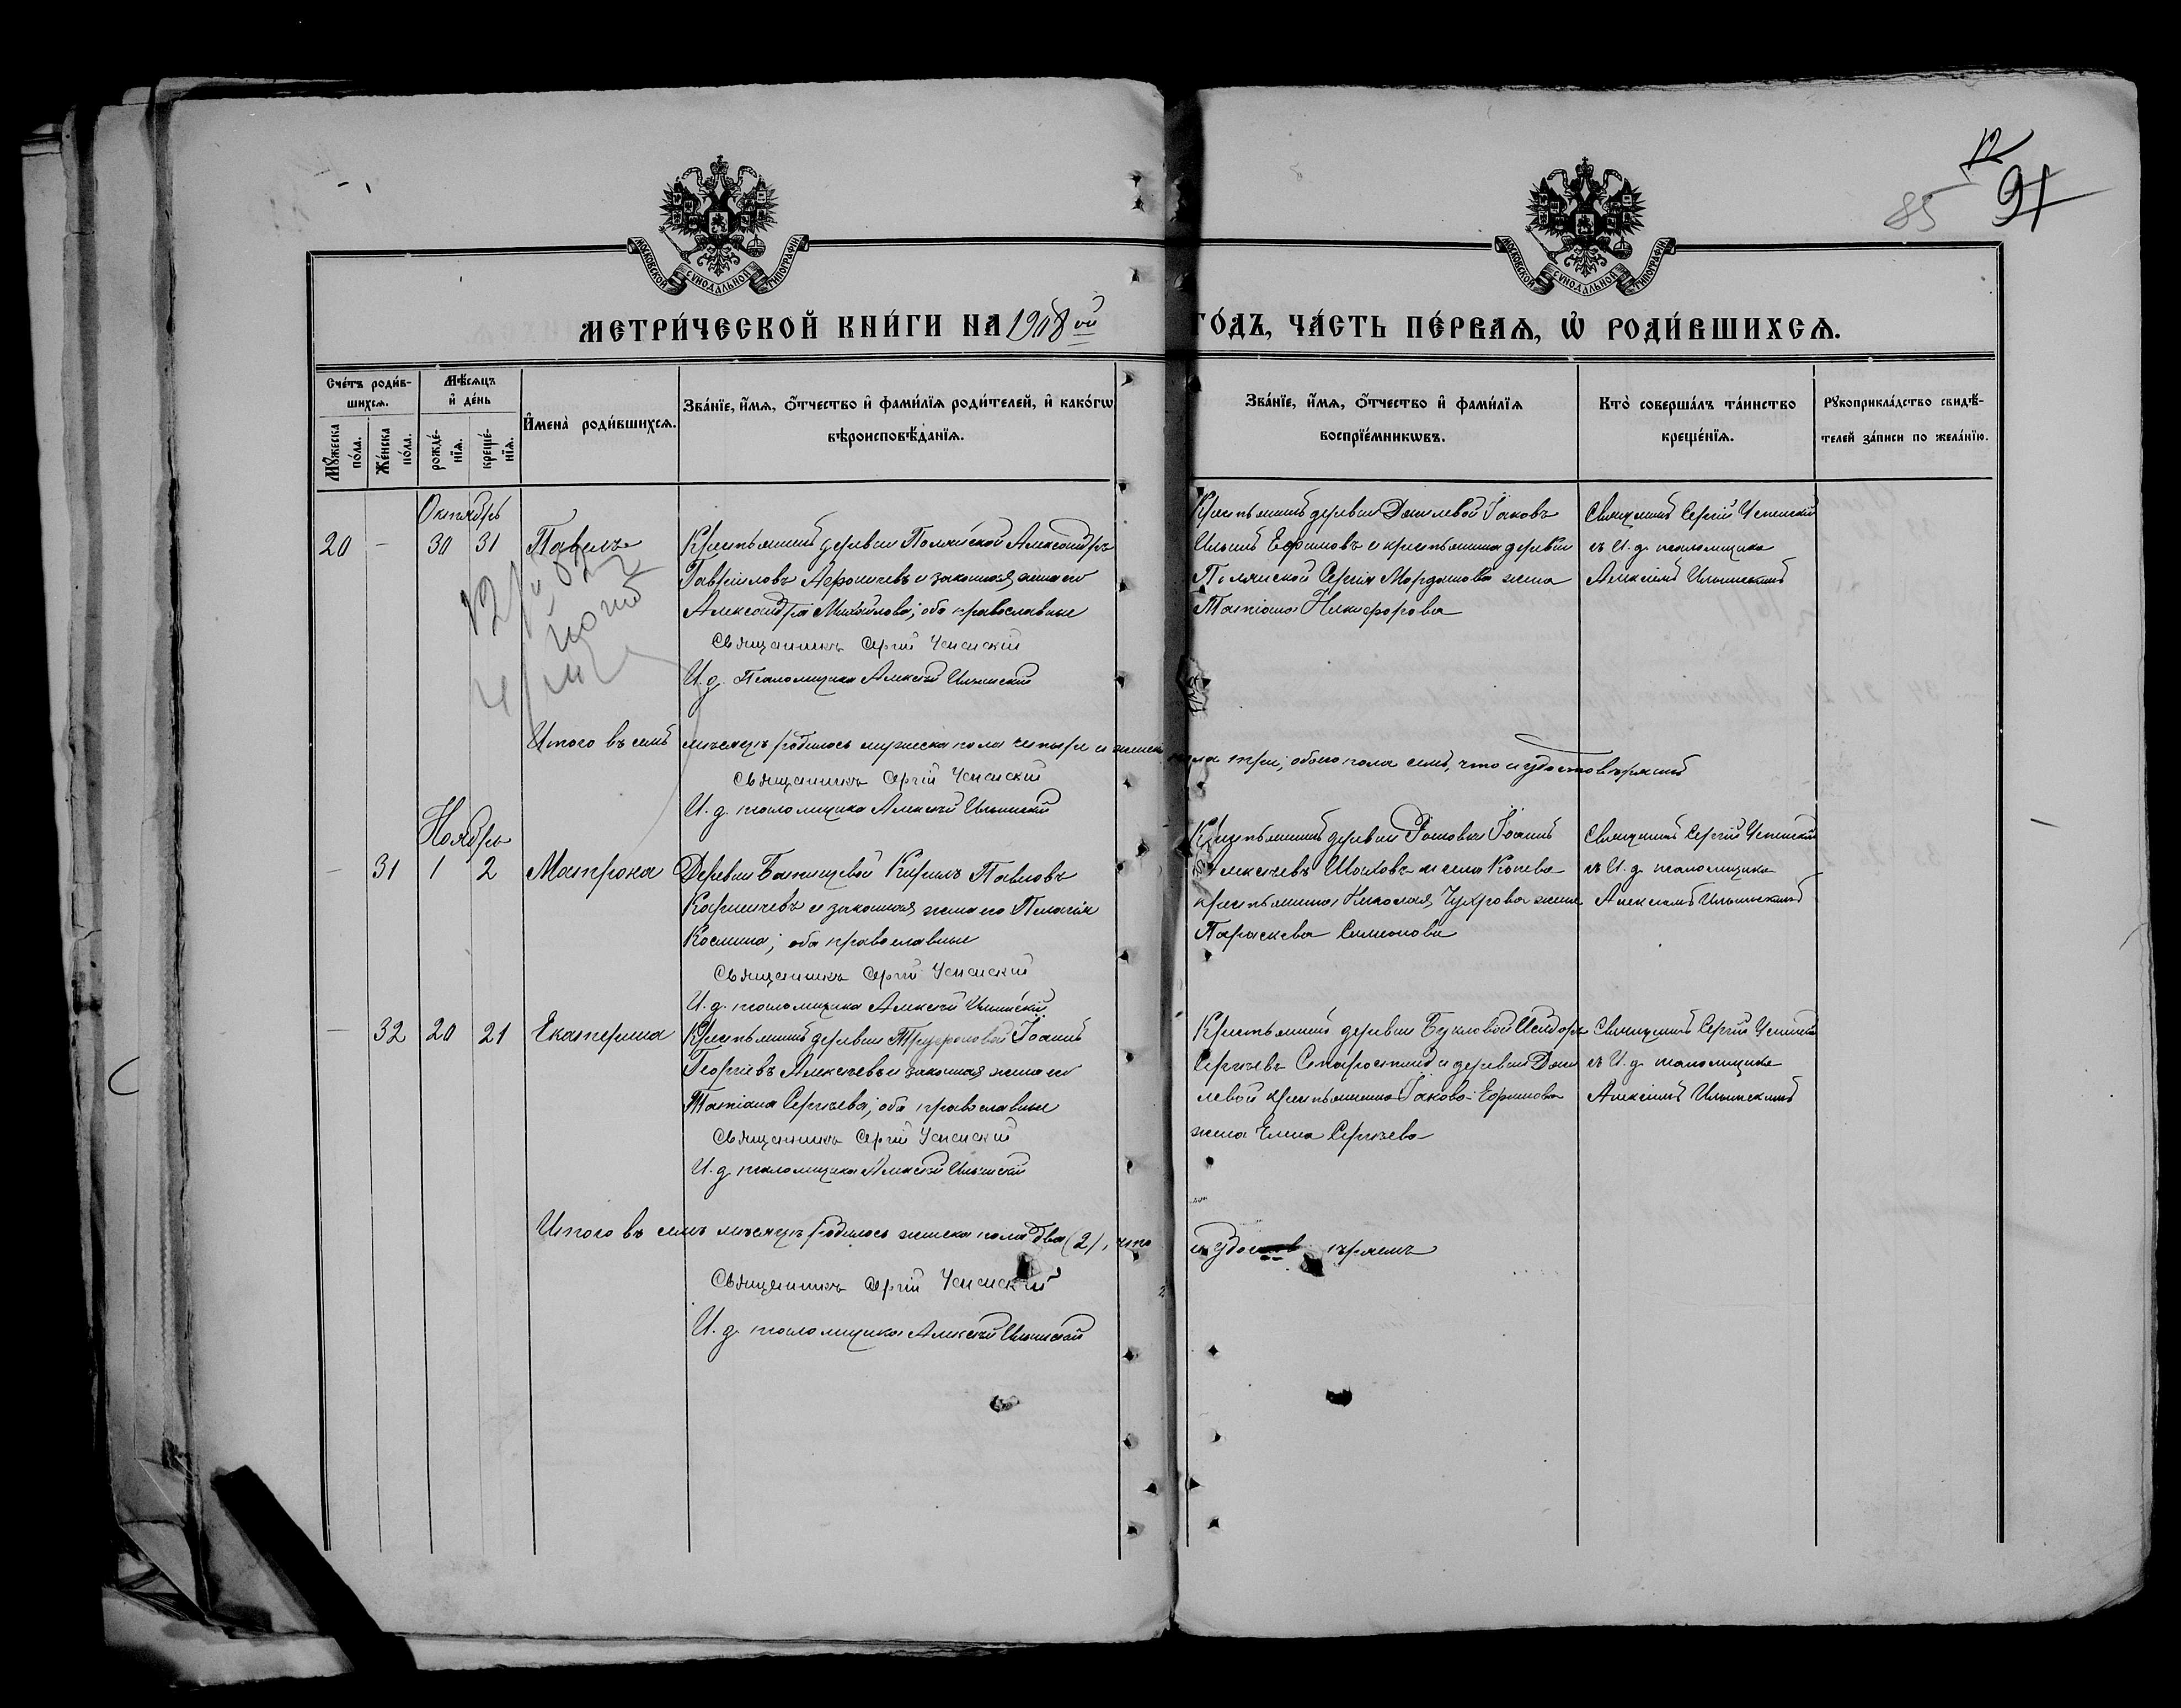 12
85 91
МОСКОВСКОЙ СѴНОДАЛЬНОЙ ТИПОГРАФІИ
МОСКОВСКОЙ СѴНОДАЛЬНОЙ ТИПОГРАФІИ
МЕТРИ́ЧЕСКОЙ КНИ́ГИ НА 1918ый ГО́ДЪ, ЧА́СТЬ ПЕ́РВАѦ, Ѡ҆ РОДИ́ВШИХСѦ.
Сче́тъ роди́в-
шихсѧ.
Мꙋ́жеска по́ла.
Же́нска по́ла.
Мѣ́сѧцъ
и҆ де́нь
рожде́-
нїѧ.
креще́-
нїѧ.
И҆мена̀ роди́вшихсѧ.
Зва́нїе, и҆́мѧ, ѻ҆́тчество и҆ фами́лїѧ роди́телей, и҆ како́гѡ
вѣроисповѣ́данїѧ.
Зва́нїе, и҆́мѧ, ѻ҆́тчество и҆ фами́лїѧ
воспрїе́мникѡвъ.
Кто̀ соверша́лъ та́инство
креще́нїѧ.
Рꙋкоприкла́дство свидѣ́-
телей за́писи по жела́нїю.
Октябрь
20 - 30 31 Павелъ
Крестьянинъ деревни Полянской Александръ
Гавріиловъ и законная жена его
Александра Михайлова; оба православные
Священникъ Сергій Успенскій
И. д. Псаломщика Алексѣй Ильинскій
Крестьянинъ деревни Данилевой Іаковъ
Ильинъ Ефимовъ и крестьянина деревни
Полянской Сергія Мордашова жена
Татіана Никифорова
Священникъ Сергій Успенскій
съ И. д. псаломщика
Алексіемъ Ильинскимъ
Итого въ семъ мѣсяцѣ родилось мужеска пола четыре и женска пола три; обоего пола семь, что и удостовѣряемъ
Священникъ Сергій Успенскій
И. д. псаломщика Алексѣй Ильинскій
Ноябрь
- 31 1 2 Матрона
Деревни Кириллъ Павловъ
и законная жена его Пелагія
Космина; оба православные
Священникъ Сергій Успенскій
И. д. псаломщика Алексѣй Ильинскій
Крестьянинъ деревни Іоаннъ
Алексѣевъ и села
крестьянина Николая жена
Параскева Симеонова
Священникъ Сергій Успенскій
съ И. д. псаломщика
Алексіемъ Ильинскимъ
- 32 20 21 Екатерина
Крестьянинъ деревни Труфоновой Іоаннъ
Георгіевъ Алексѣевъ и законная жена его
Татіана Сергѣева; оба православные
Священникъ Сергій Успенскій
И. д. псаломщика Алексѣй Ильинскій
Крестьянинъ деревни Исидоръ
Сергѣевъ и деревни Дани
левой крестьянина Іакова Ефимова
жена Елена Сергѣева
Священникъ Сергій Успенскій
съ И. д. псаломщика
Алексіемъ Ильинскимъ
Итого въ семъ мѣсяцѣ родилось женска пола два (2), что и удостовѣряемъ
Священникъ Сергій Успенскій
И. д. псаломщика Алексѣй Ильинскій